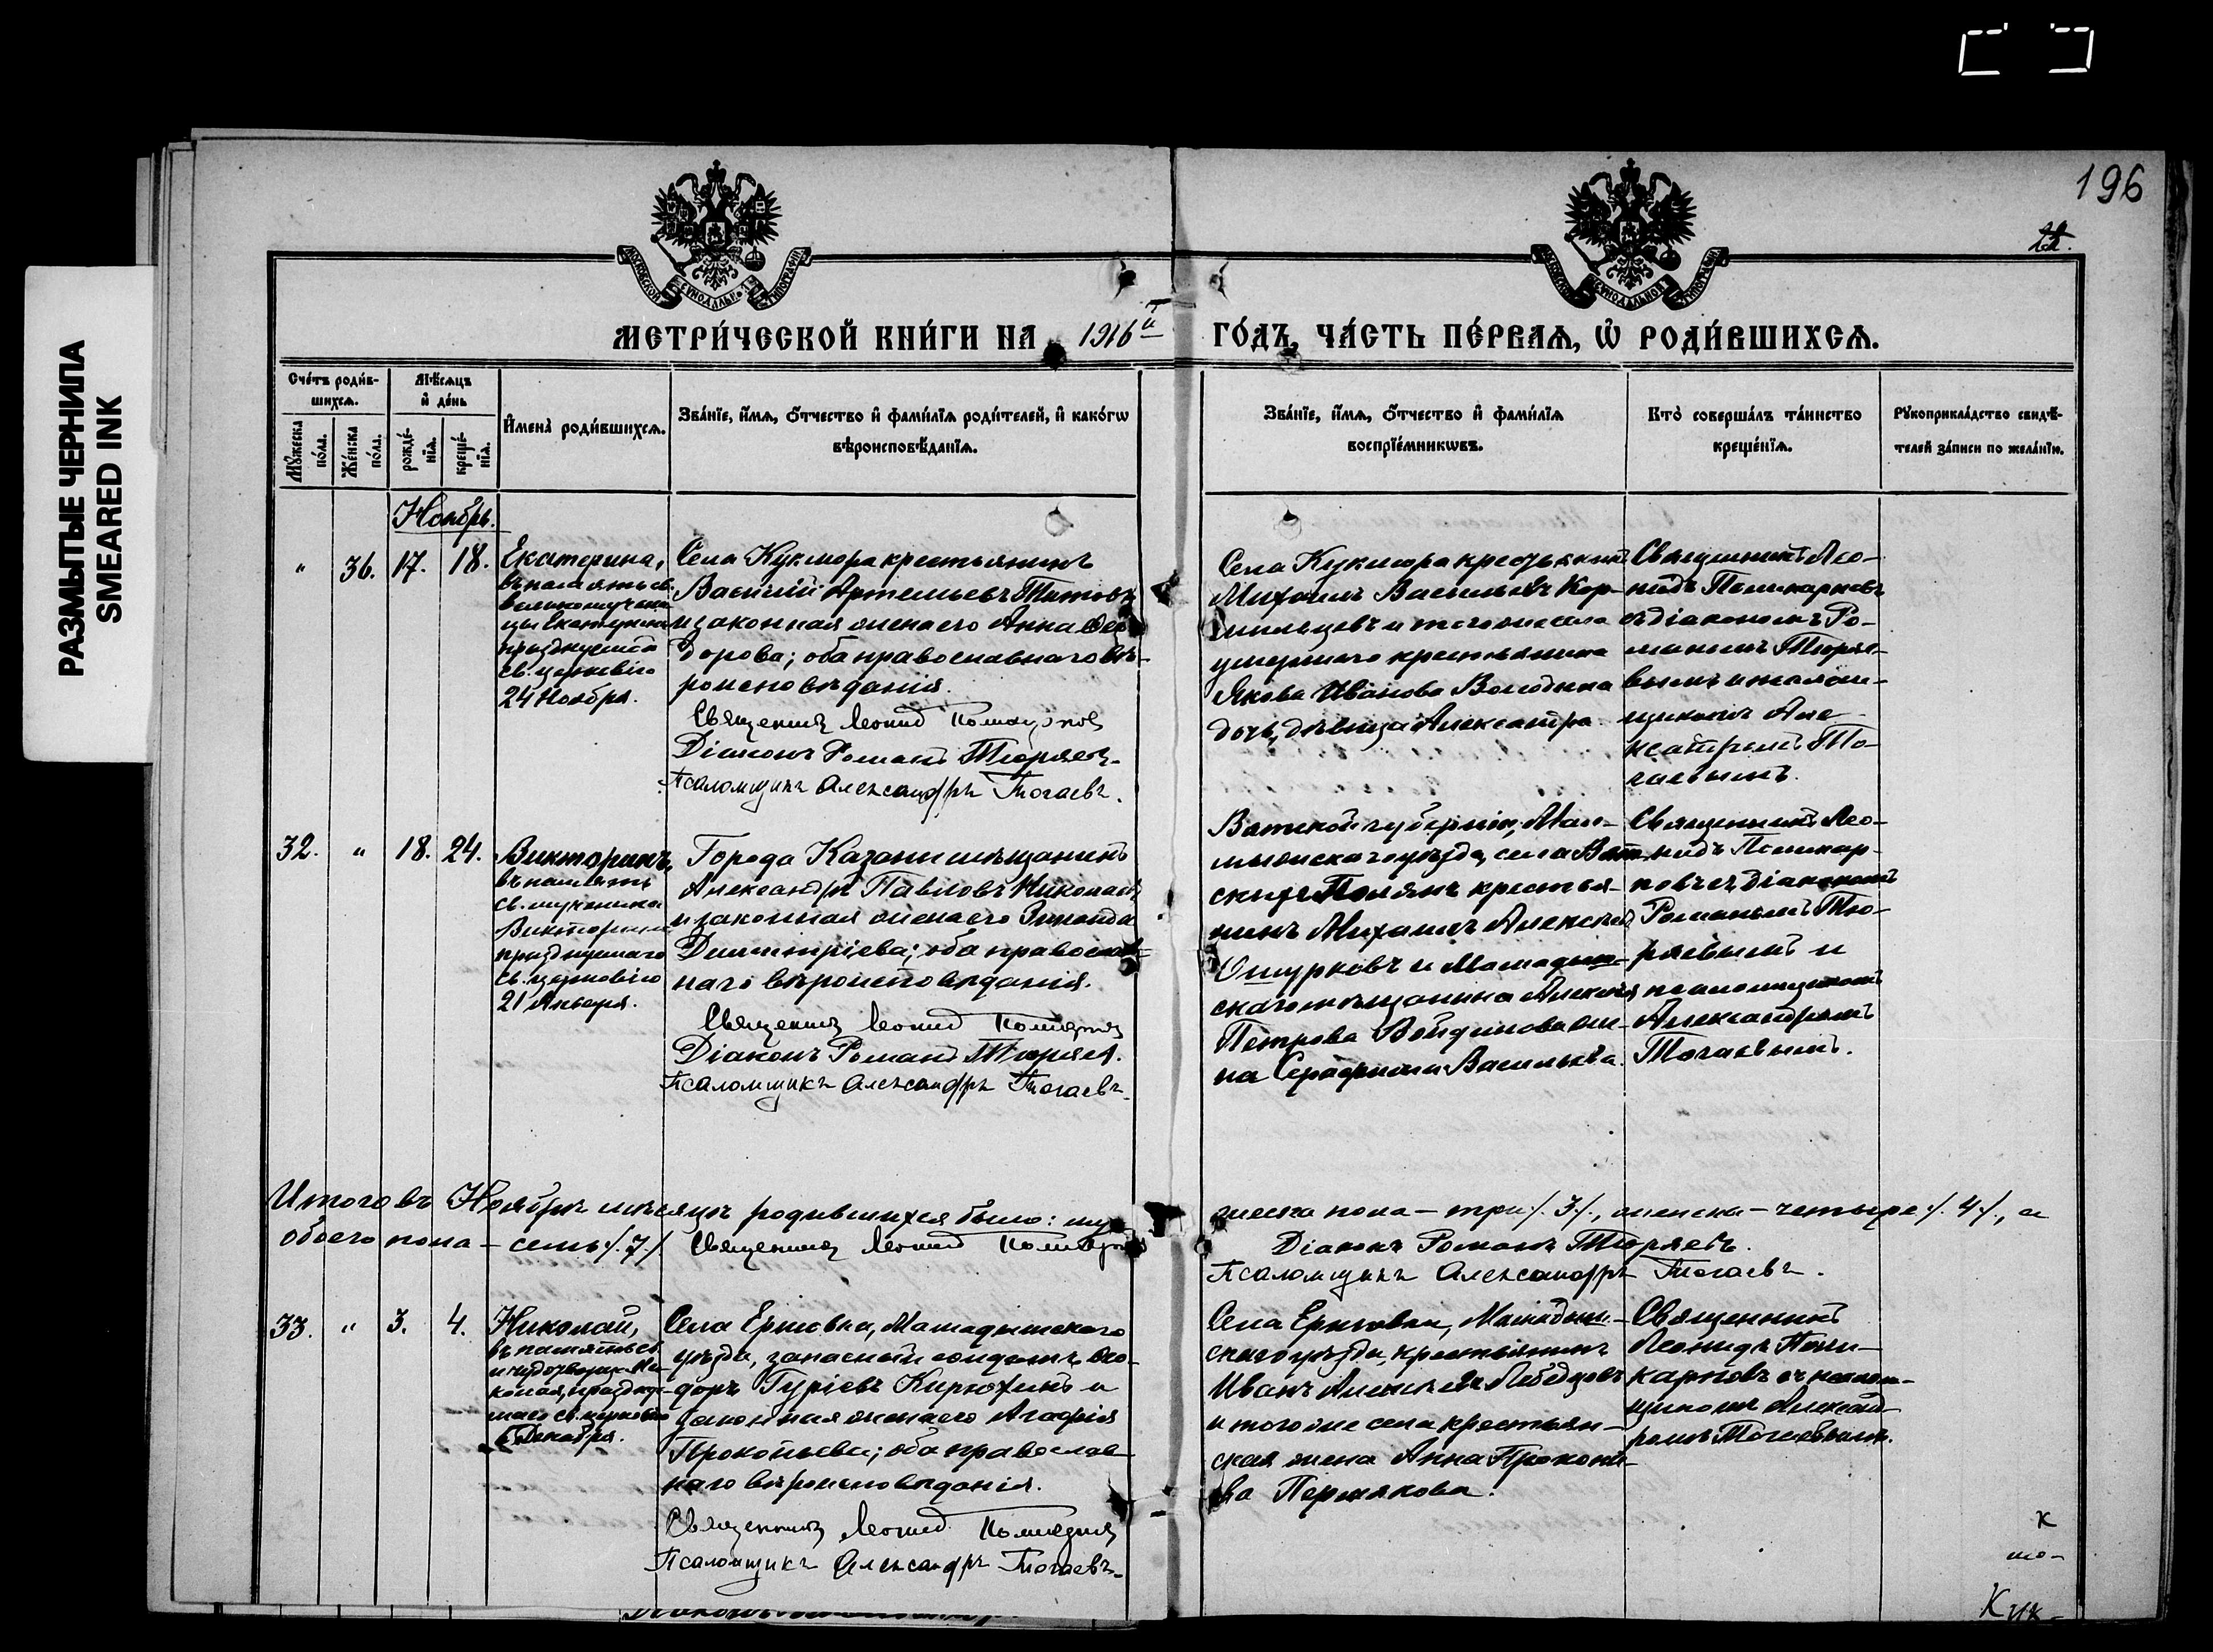 РАЗМЫТЫЕ ЧЕРНИЛА
SMEARED INK
196
МОСКОВСКОЙ СѴНОДАЛЬНОЙ ТИПОГРАФІИ
МОСКОВСКОЙ СѴНОДАЛЬНОЙ ТИПОГРАФІИ
МЕТРИ́ЧЕСКОЙ КНИ́ГИ НА 1916й ГО́ДЪ, ЧА́СТЬ ПЕ́РВАѦ, Ѡ҆ РОДИ́ВШИХСѦ.
Сче́тъ роди́в-
шихсѧ.
Мꙋ́жеска по́ла.
Же́нска по́ла.
Мѣ́сѧцъ
и҆ де́нь
рожде́-
нїѧ.
креще́-
нїѧ.
И҆мена̀ роди́вшихсѧ.
Зва́нїе, и҆́мѧ, ѻ҆́тчество и҆ фами́лїѧ роди́телей, и҆ како́гѡ
вѣроисповѣ́данїѧ.
Зва́нїе, и҆́мѧ, ѻ҆́тчество и҆ фами́лїѧ
воспрїе́мникѡвъ.
Кто̀ соверша́лъ та́инство
креще́нїѧ.
Рꙋкоприкла́дство свидѣ́-
телей за́писи по жела́нїю.
Ноябрь.
" 36. 17. 18.
Екатерина,
въ память св.
великомучени-
цы Екатерины
празднуемой
св. церковію
24 Ноября.
Села Кукмора крестьянинъ
Василій Артемьевъ Титовъ
и законная жена его Анна Ѳео-
дорова; оба православнаго вѣ-
роисповѣданія.
Священникъ Леонид Поликарпов
Діаконъ Романъ Тюряевъ.
Псаломщикъ Александръ Тогаевъ.
Села Кукмора крестьянинъ
Михаилъ Васильевъ Кор-
мильцовъ и того же села
умершаго крестьянина
Якова Иванова Володина
дочь, дѣвица Александра.
Священникъ Лео-
нидъ Поликарповъ
съ діакономъ Ро-
маномъ Тюряе-
вымъ и псалом-
щикомъ Але-
ксандромъ То-
гаевымъ.
32. " 18. 24.
Викторинъ,
въ память
св. мученика
Викторина
празднуемаго
св. церковію
21 Января.
Города Казани мѣщанинъ
Александръ Павловъ Николаевъ
и законная жена его Зинаида
Димитріева; оба православ-
наго вѣроисповѣданія.
Священникъ Леонид Поликарпов
Діаконъ Романъ Тюряевъ.
Псаломщикъ Александръ Тогаевъ.
Вятской губерніи, Мал-
мыжскаго уѣзда, села Вят-
скихъ Полянъ крестья-
нинъ Михаилъ Алексѣевъ
Ошурковъ и Мамадыш-
скаго мѣщанина Алексѣя
Петрова Войдинова же-
на Серафима Васильева.
Священникъ Лео-
нидъ Поликар-
повъ съ діакономъ
Романомъ Тю-
ряевымъ и
псаломщикомъ
Александромъ
Тогаевымъ.
Итого въ Ноябрѣ мѣсяцѣ родившихся было: му-
жеска пола – три /. 3 /., женска – четыре /. 4 /., а
обоего пола – семь /. 7 /.
Священникъ Леонид Поликарпов
Діаконъ Романъ Тюряевъ.
Псаломщикъ Александръ Тогаевъ.
33. " 3. 4.
Николай,
въ память св.
и чудотворца Ни-
колая, праздну-
емаго св. церковію
6 Декабря.
Села Ершовки, Мамадышскаго
уѣзда, запасный солдатъ Ѳео-
доръ Гурьевъ Кирюхинъ и
законная жена его Агафія
Прокопьева; оба православ-
наго вѣроисповѣданія.
Священникъ Леонид Поликарпов
Псаломщикъ Александръ Тогаевъ.
Села Ершовки, Мамадыш-
скаго уѣзда, крестьянинъ
Иванъ Алексѣевъ Лебедцовъ
и того же села крестьян-
ская жена Анна Прокопь-
ева Пермякова.
Священникъ
Леонидъ Поли-
карповъ съ псалом-
щикомъ Александ-
ромъ Тогаевымъ.
к
мо-
Кук-